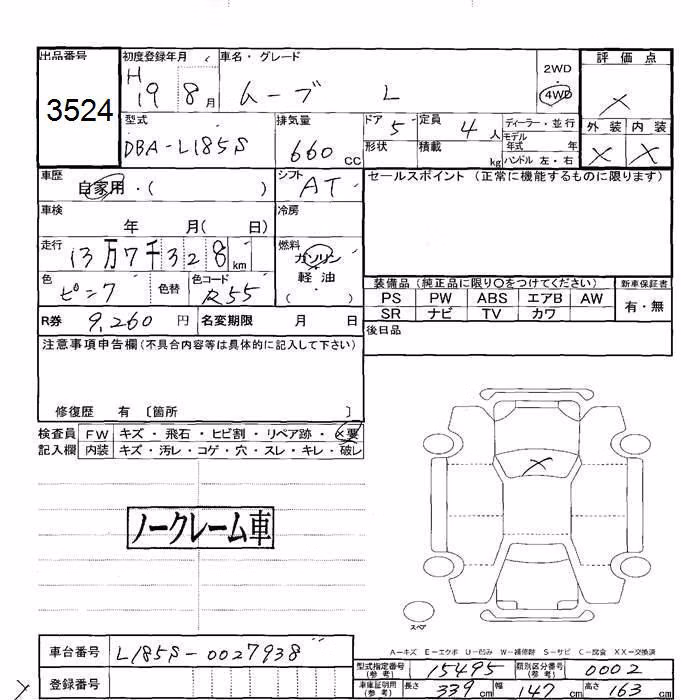 出品番号 初度登録年月 車名・グレード 評価点
3524 H 19 8月 ムーブ L 2WD 4WD ×
型式 排気量 ドア 5 定員 4人 ディーラー・並行 外装 内装
DBA-L185S 660 CC 形状 積載 kg モデル年式 年 × ×
ハンドル 左・右
車歴 自家用・( ) シフト AT セールスポイント (正常に機能するものに限ります)
車検 年 月( 日) 冷房
走行 13万7千328km 燃料 ガソリン・軽油 ( )
色 ピンク 色替 色コード R55 装備品 (純正品に限り○をつけてください) 新車保証書
PS PW ABS エアB AW 有・無
SR ナビ TV カワ
R券 9,260円 名変期限 月 日 後日品
注意事項申告欄(不具合内容等は具体的に記入して下さい)
修復歴 有 〔箇所 〕
検査員 FW キズ・飛石・ヒビ割・リペア跡・×要
記入欄 内装 キズ・汚レ・コゲ・穴・スレ・キレ・破レ
×
ノークレーム車
スペア
A-キズ E-エクボ U-凹み W-補修跡 S-サビ C-腐食 XX-交換済
車台番号 L185S-0027938
型式指定番号(参考) 15495 類別区分番号(参考) 0002
登録番号 車庫証明用(参考) 長さ 339cm 幅 147cm 高さ 163cm